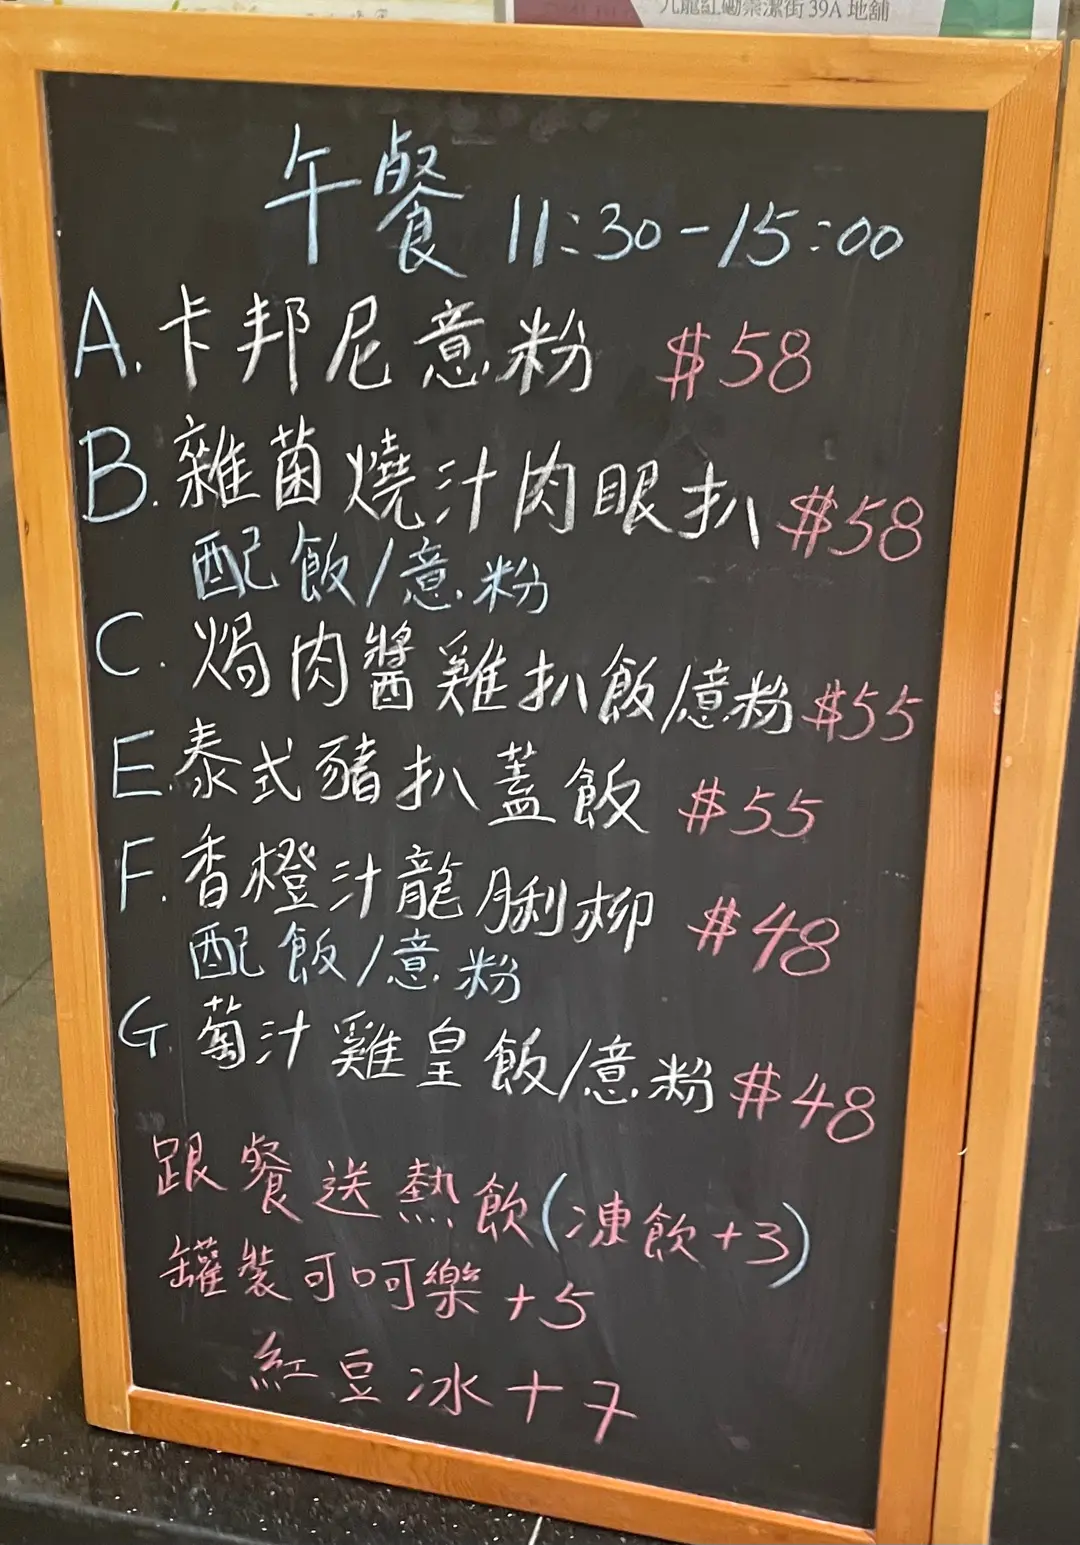 九龍紅磡崇潔街39A地舖
午餐 11:30-15:00
A. 卡邦尼意粉 $58
B. 雜菌燒汁肉眼扒 $58
配飯/意粉
C. 焗肉醬雞扒飯/意粉 $55
E. 泰式豬扒蓋飯 $55
F. 香橙汁龍脷柳 $48
配飯/意粉
G. 葡汁雞皇飯/意粉 $48
跟餐送熱飲(凍飲+3)
罐裝可呵樂+5
紅豆冰+7